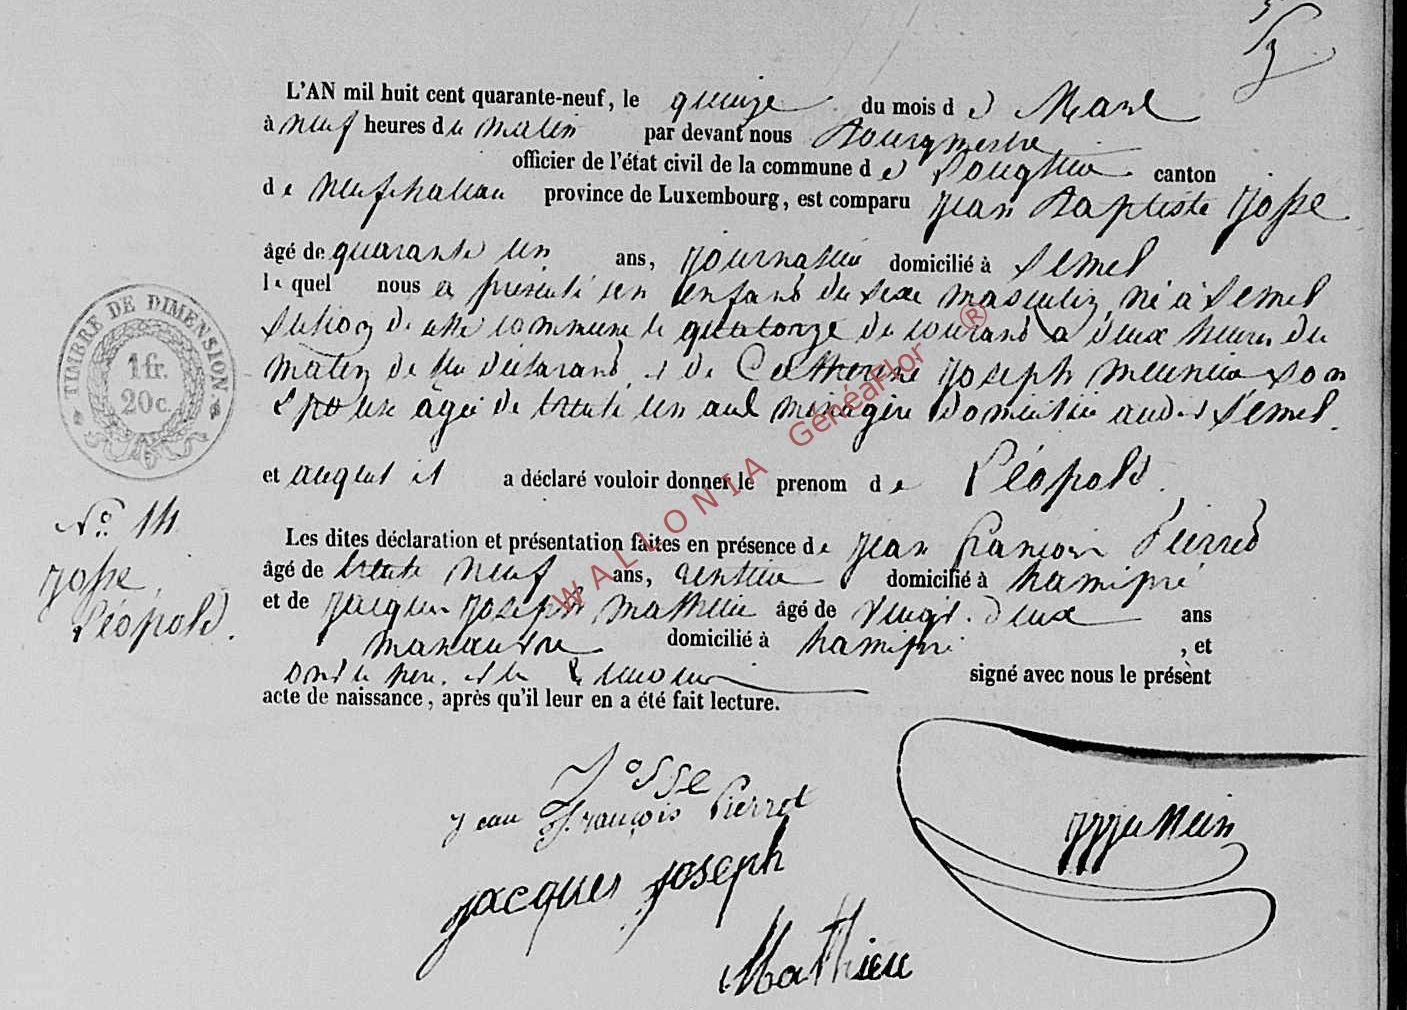 L'AN mil huit cent quarante-neuf, le quinze du mois de Mars
à neuf heures du matin par devant nous Bourgmestre
officier de l'état civil de la commune de Longlier canton
de neufchateau province de Luxembourg, est comparu jean Baptiste josse
âgé de quarante un ans, journalier domicilié à Semel
lequel nous a présenté un enfant du sexe masculin, né à Semel
section de cette commune le quatorze du courant a deux heures du
matin de lui déclarant et de Catherine joseph meunier son
épouse âgée de trente un ans ménagère domiciliée audit Semel.
et auquel il a déclaré vouloir donner le prenom de Léopold.
Les dites déclaration et présentation faites en présence de jean françois Pierret
âgé de trente neuf ans, rentier domicilié à hamipré
et de jacques joseph mathieu âgé de vingt-deux ans
manœuvre domicilié à hamipré, et
ont le père et les témoins signé avec nous le présent
acte de naissance, après qu'il leur en a été fait lecture.
TIMBRE DE DIMENSION
1 fr.
20 c.
No. 14
josse,
Léopold.
Josse
jean François Pierret
jacques joseph
Mathieu
WALLONIA GénéaFlor ®